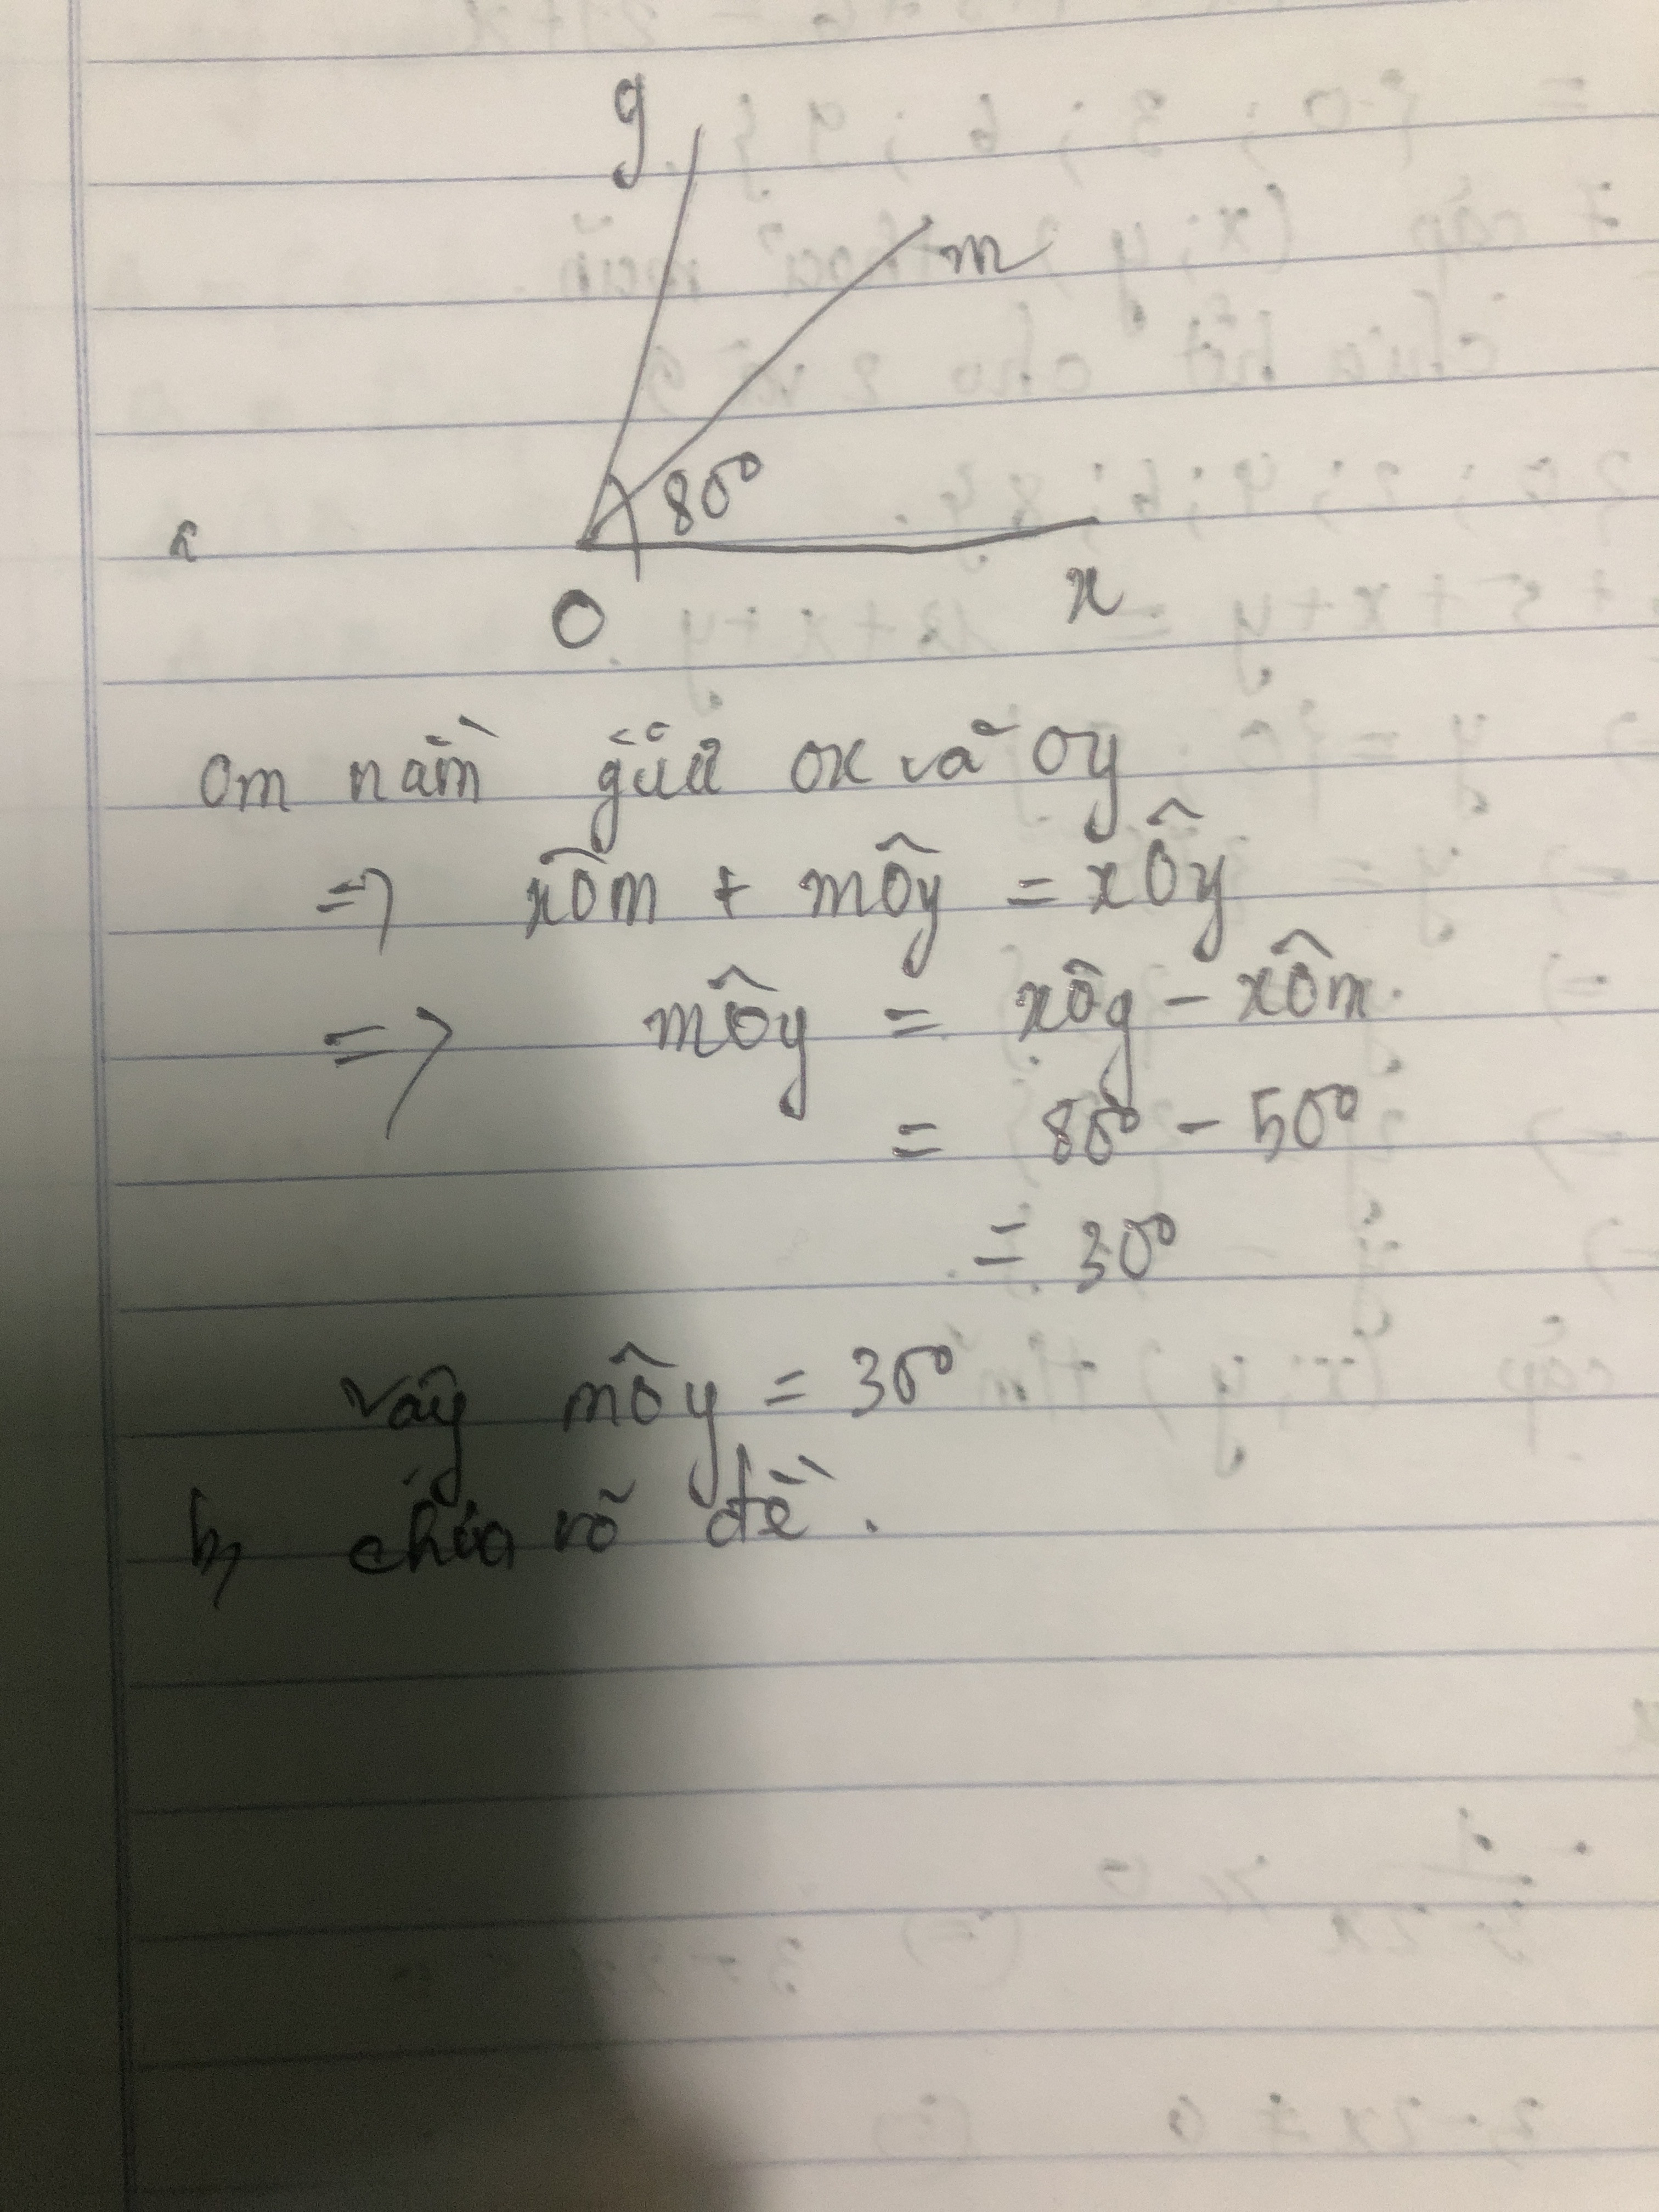 y
m
80°
O
x
Om nằm giữa Ox và Oy
=> xÔm + mÔy = xÔy
=> mÔy = xÔy - xÔm.
= 80° - 50°
= 30°
vậy mÔy = 30°
b, chưa rõ đề.